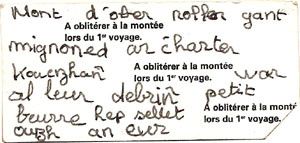 Mont d'ober roller gant
A oblitérer à la montée
lors du 1er voyage.
mignoned ar c'harter
Kouezhañ
A oblitérer à la montée
lors du 1er voyage.
war
al leur debriñ petit
beurre hep sellet
A oblitérer à la montée
lors du 1er voyage.
ouzh an eur